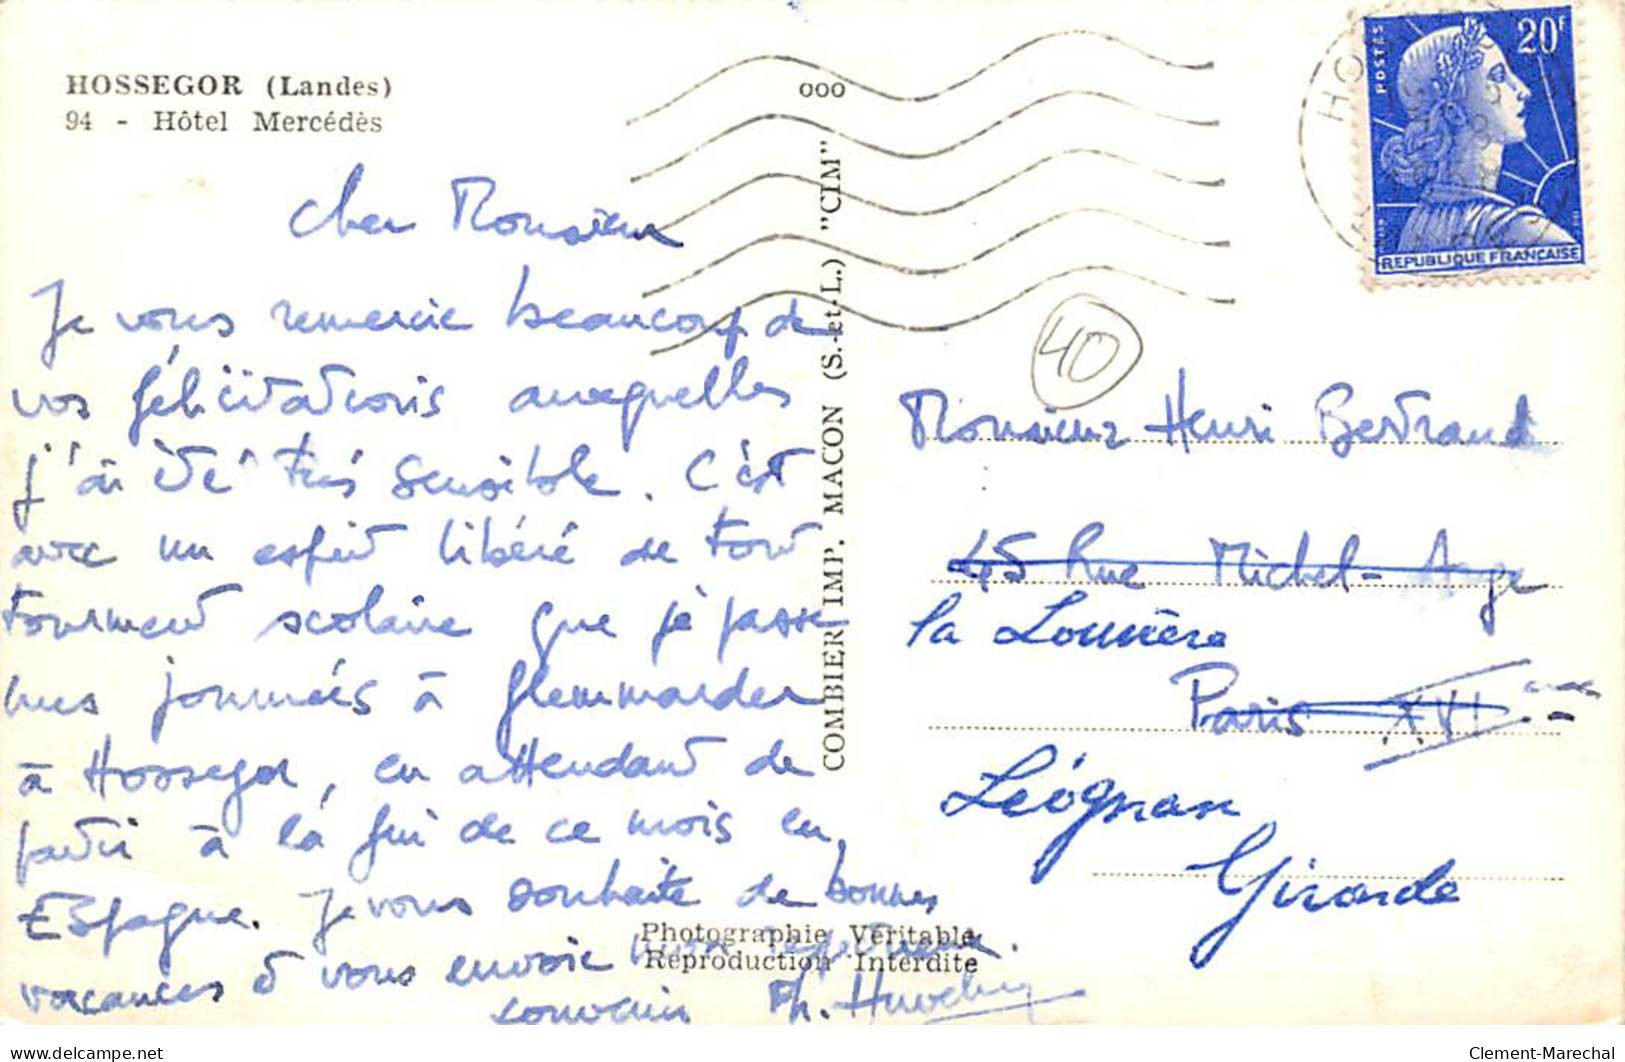 HOSSEGOR (Landes)
94 - Hôtel Mercédès
Cher Monsieur
Je vous remercie beaucoup de
vos félicitations auxquelles
j'ai été très sensible. C'est
avec un esprit libéré de tout
tourment scolaire que je passe
mes journées à flemmarder
à Hossegor, en attendant de
partir à la fin de ce mois en
Espagne. Je vous souhaite de bonnes
vacances et vous envoie mon respectueux
souvenir Ph.
ooo
COMBIER IMP. MACON (S.-et-L.) "CIM"
Photographie Véritable
Reproduction Interdite
POSTES
20F
REPUBLIQUE FRANÇAISE
40
Monsieur Henri Bertrand
45 Rue Michel-Ange
la Louvière
Paris XVI
Léognan
Gironde
delcampe.net
Clement-Marechal